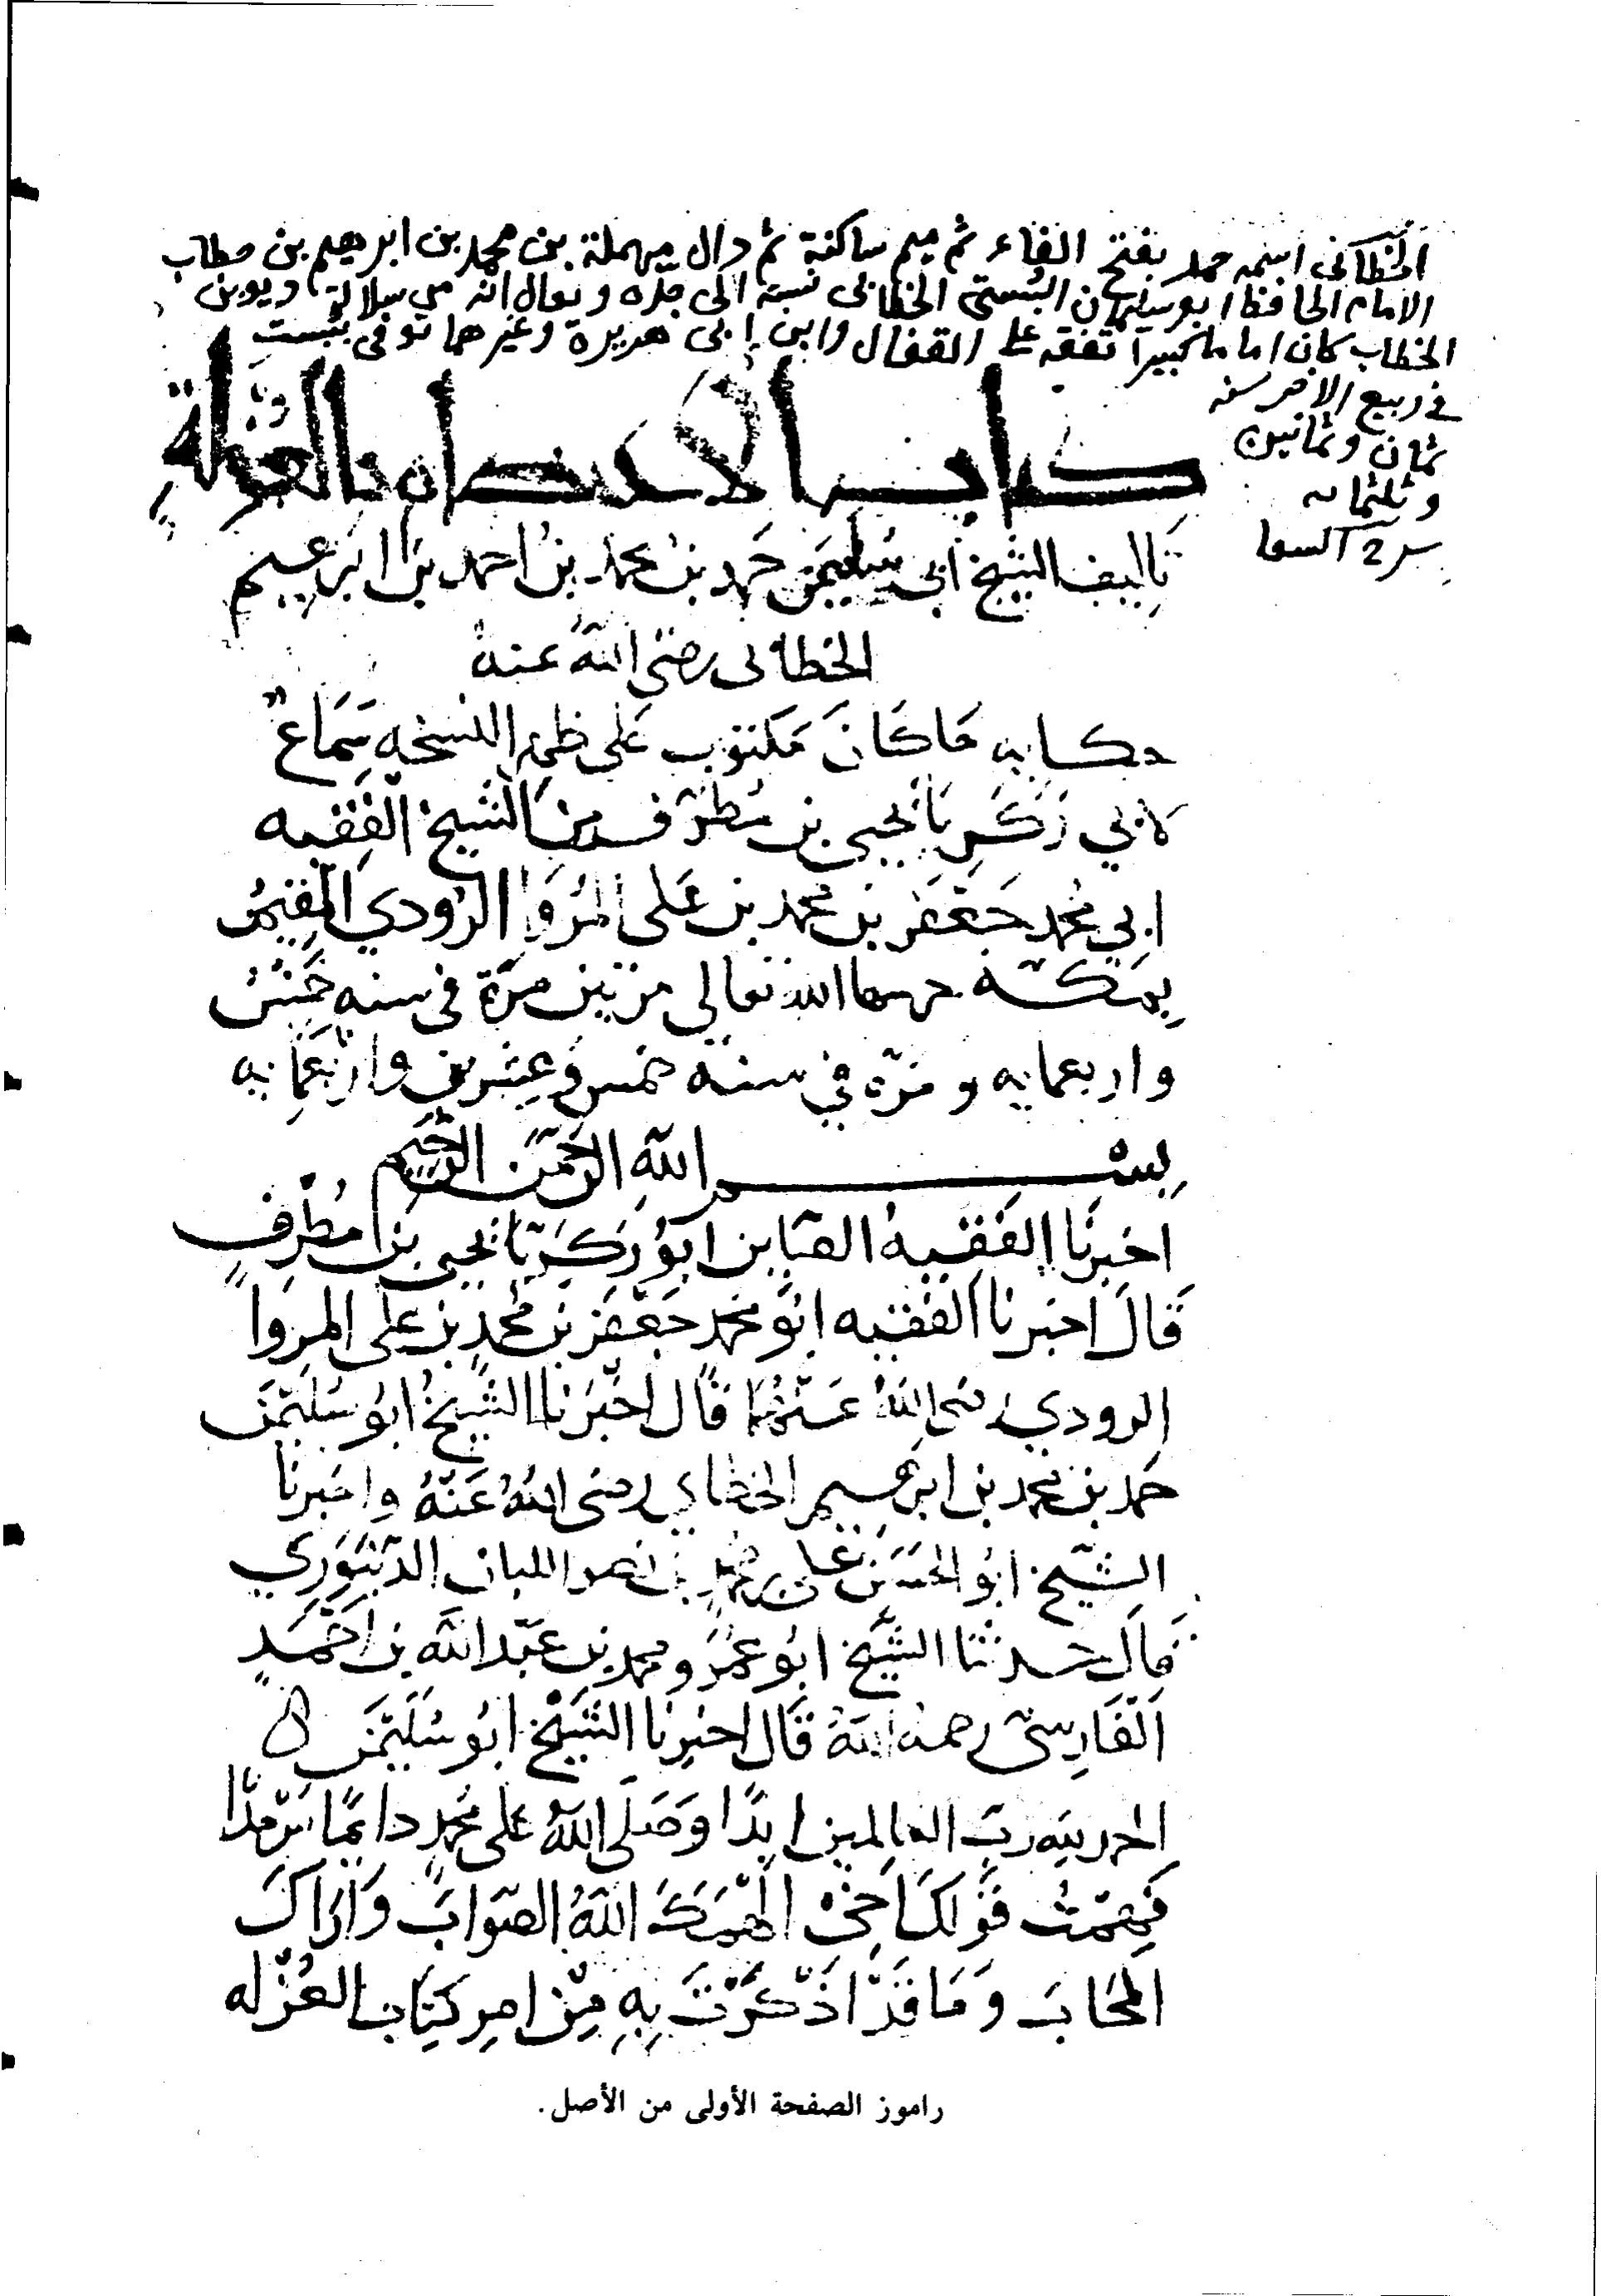 الخطابي اسمه حمد بفتح الحاء ثم ميم ساكنة ثم دال مهملة بن محمد بن ابرهيم بن خطاب
الامام الحافظ ابو سليمان البستي الخطابي نسبة الى جده ويقال انه من سلالة زيد بن
الخطاب كان اماما كبيرا تفقه على القفال وابن ابي هريرة وغيرهما توفى ببست
في ربيع الاخر سنه
ثمان وثمانين
وثلثمائه
كتاب العزلة
تاليف الشيخ ابي سليمن حمد بن محمد بن احمد بن ابرهيم
الخطابي رضي الله عنه
حكايه ما كان مكتوب على ظهر النسخه سماع
لابي زكريا يحيى بن مطرف من الشيخ الفقيه
ابي محمد جعفر بن محمد بن على المروا الرودي المقيم
بمكة حرسها الله تعالى مرتين مرة في سنه خمس
واربعمايه ومرة في سنه خمس وعشرين واربعمايه
بسم الله الرحمن الرحيم
اخبرنا الفقيه ابو زكريا يحيى بن مطرف
قال اخبرنا الفقيه ابو محمد جعفر بن محمد بن على المروا
الرودي رضى الله عنهما قال اخبرنا الشيخ ابو سليمن
حمد بن محمد بن ابرهيم الخطابي رضى الله عنه واخبرنا
الشيخ ابو الحسن على بن بن نصر اللبان الدينوري
قال حدثنا الشيخ ابو عمرو محمد بن عبد الله بن احمد
الفارسي رحمه الله قال اخبرنا الشيخ ابو سليمن
الحمد لله رب العالمين ابدا وصلى الله على محمد دايما سرمدا
فهمت قولك اخي الهمك الله الصواب واراك
المحاب وما قد اذكرت به من امر كتاب العزله
راموز الصفحة الأولى من الأصل.